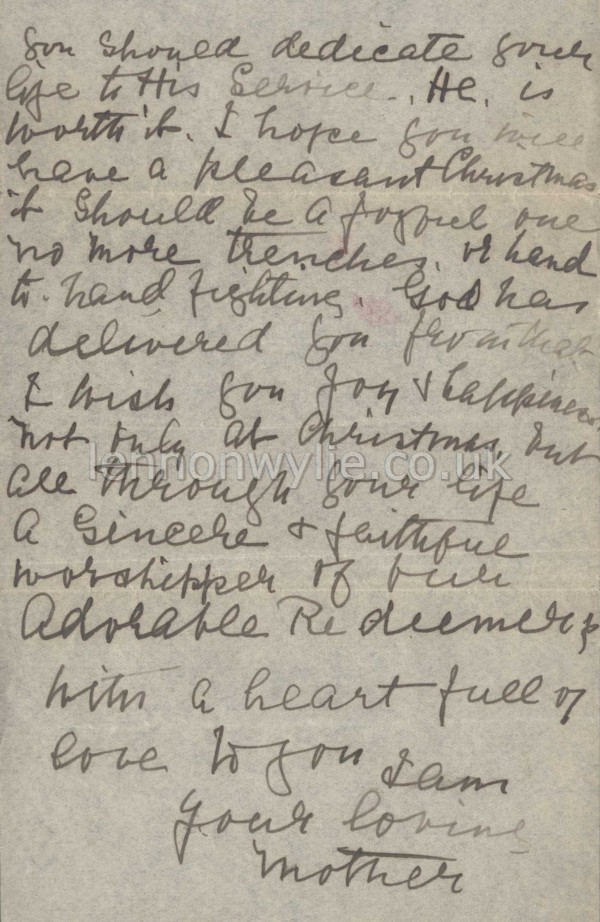 you should dedicate your
life to His Service. He. is
worth it. I hope you will
have a pleasant Christmas
it should be a joyful one
no more trenches. or hand
to. hand fighting. God has
delivered you from that
I wish you joy & happiness
not only at Christmas, but
lennonwylie.co.uk
all through your life
a sincere & faithful
worshipper of our
Adorable Redeemer
with a heart full of
love to you I am
your loving
Mother